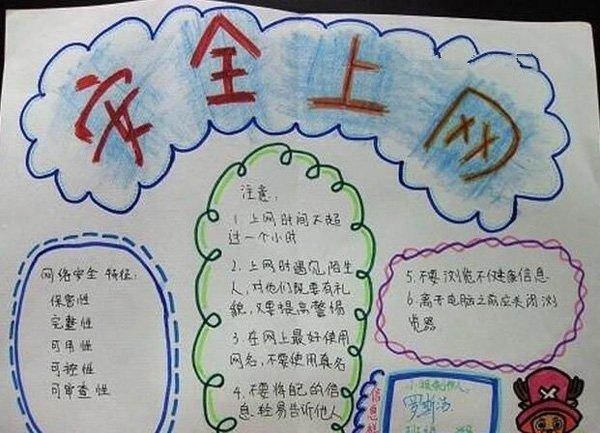 安全上网
网络安全 特征:
保密性
完整性
可用性
可控性
可审查性
注意:
1 上网时间不超
过一个小时
2. 上网时遇见陌生
人,对他们既要有礼
貌,又要提高警惕
3. 在网上最好使用
网名,不要使用真名
4. 不要将自己的信
息轻易告诉他人
5. 不要浏览不健康信息
6. 离开电脑之前应关闭浏
览器
制作人: